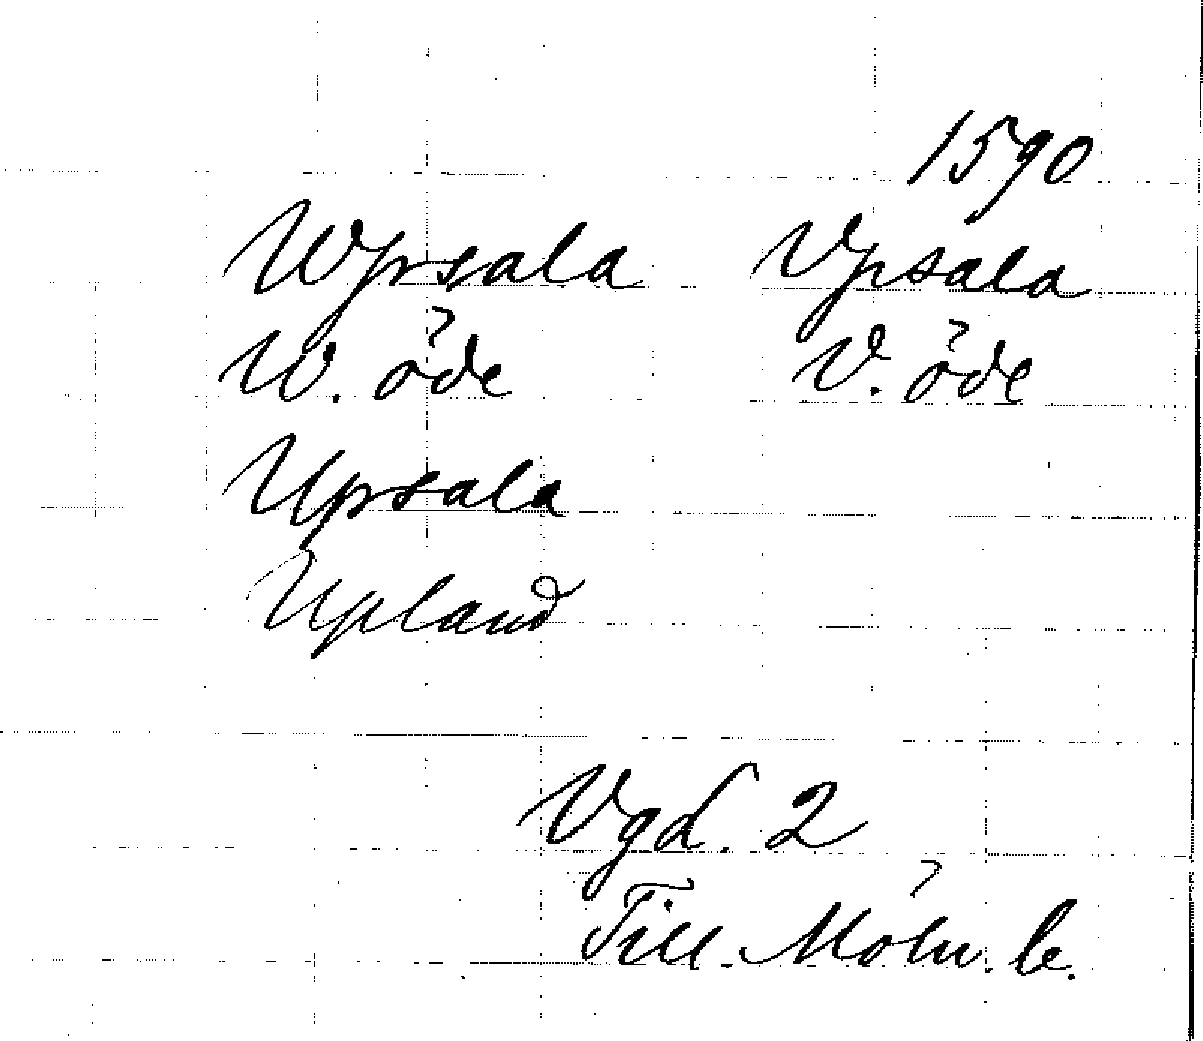 1590
Wpsala Vpsala
W. öde V. öde
Upsala
Upland
Vgd. 2
Till. Möln. b.